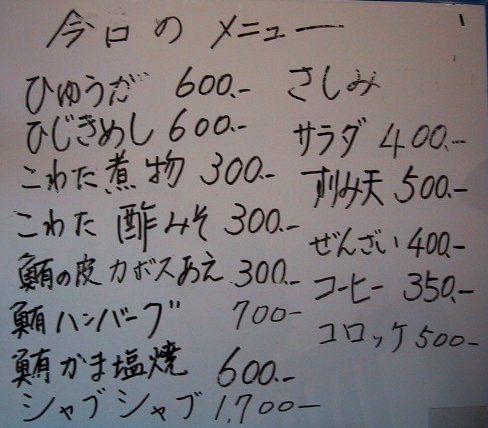 今日のメニュー
ひゅうが 600.-
ひじきめし 600.-
こわた煮物 300.-
こわた 酢みそ 300.-
鮪の皮カボスあえ 300.-
鮪ハンバーグ 700-
鮪かま塩焼 600.-
シャブシャブ 1,700-
さしみ
サラダ 400.-
すりみ天 500.-
ぜんざい 400.-
コーヒー 350.-
コロッケ 500-